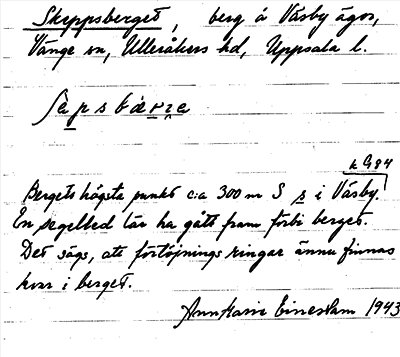 Skeppsberget, berg å Väsby ägor,
Vänge sn, Ulleråkers hd, Uppsala l.
k G 84
Bergets högsta punkt c:a 300 m S s i Väsby.
En segelled lär ha gått fram förbi berget.
Det sägs, att förtöjningsringar ännu finnas
kvar i berget.
AnnMarie 1943